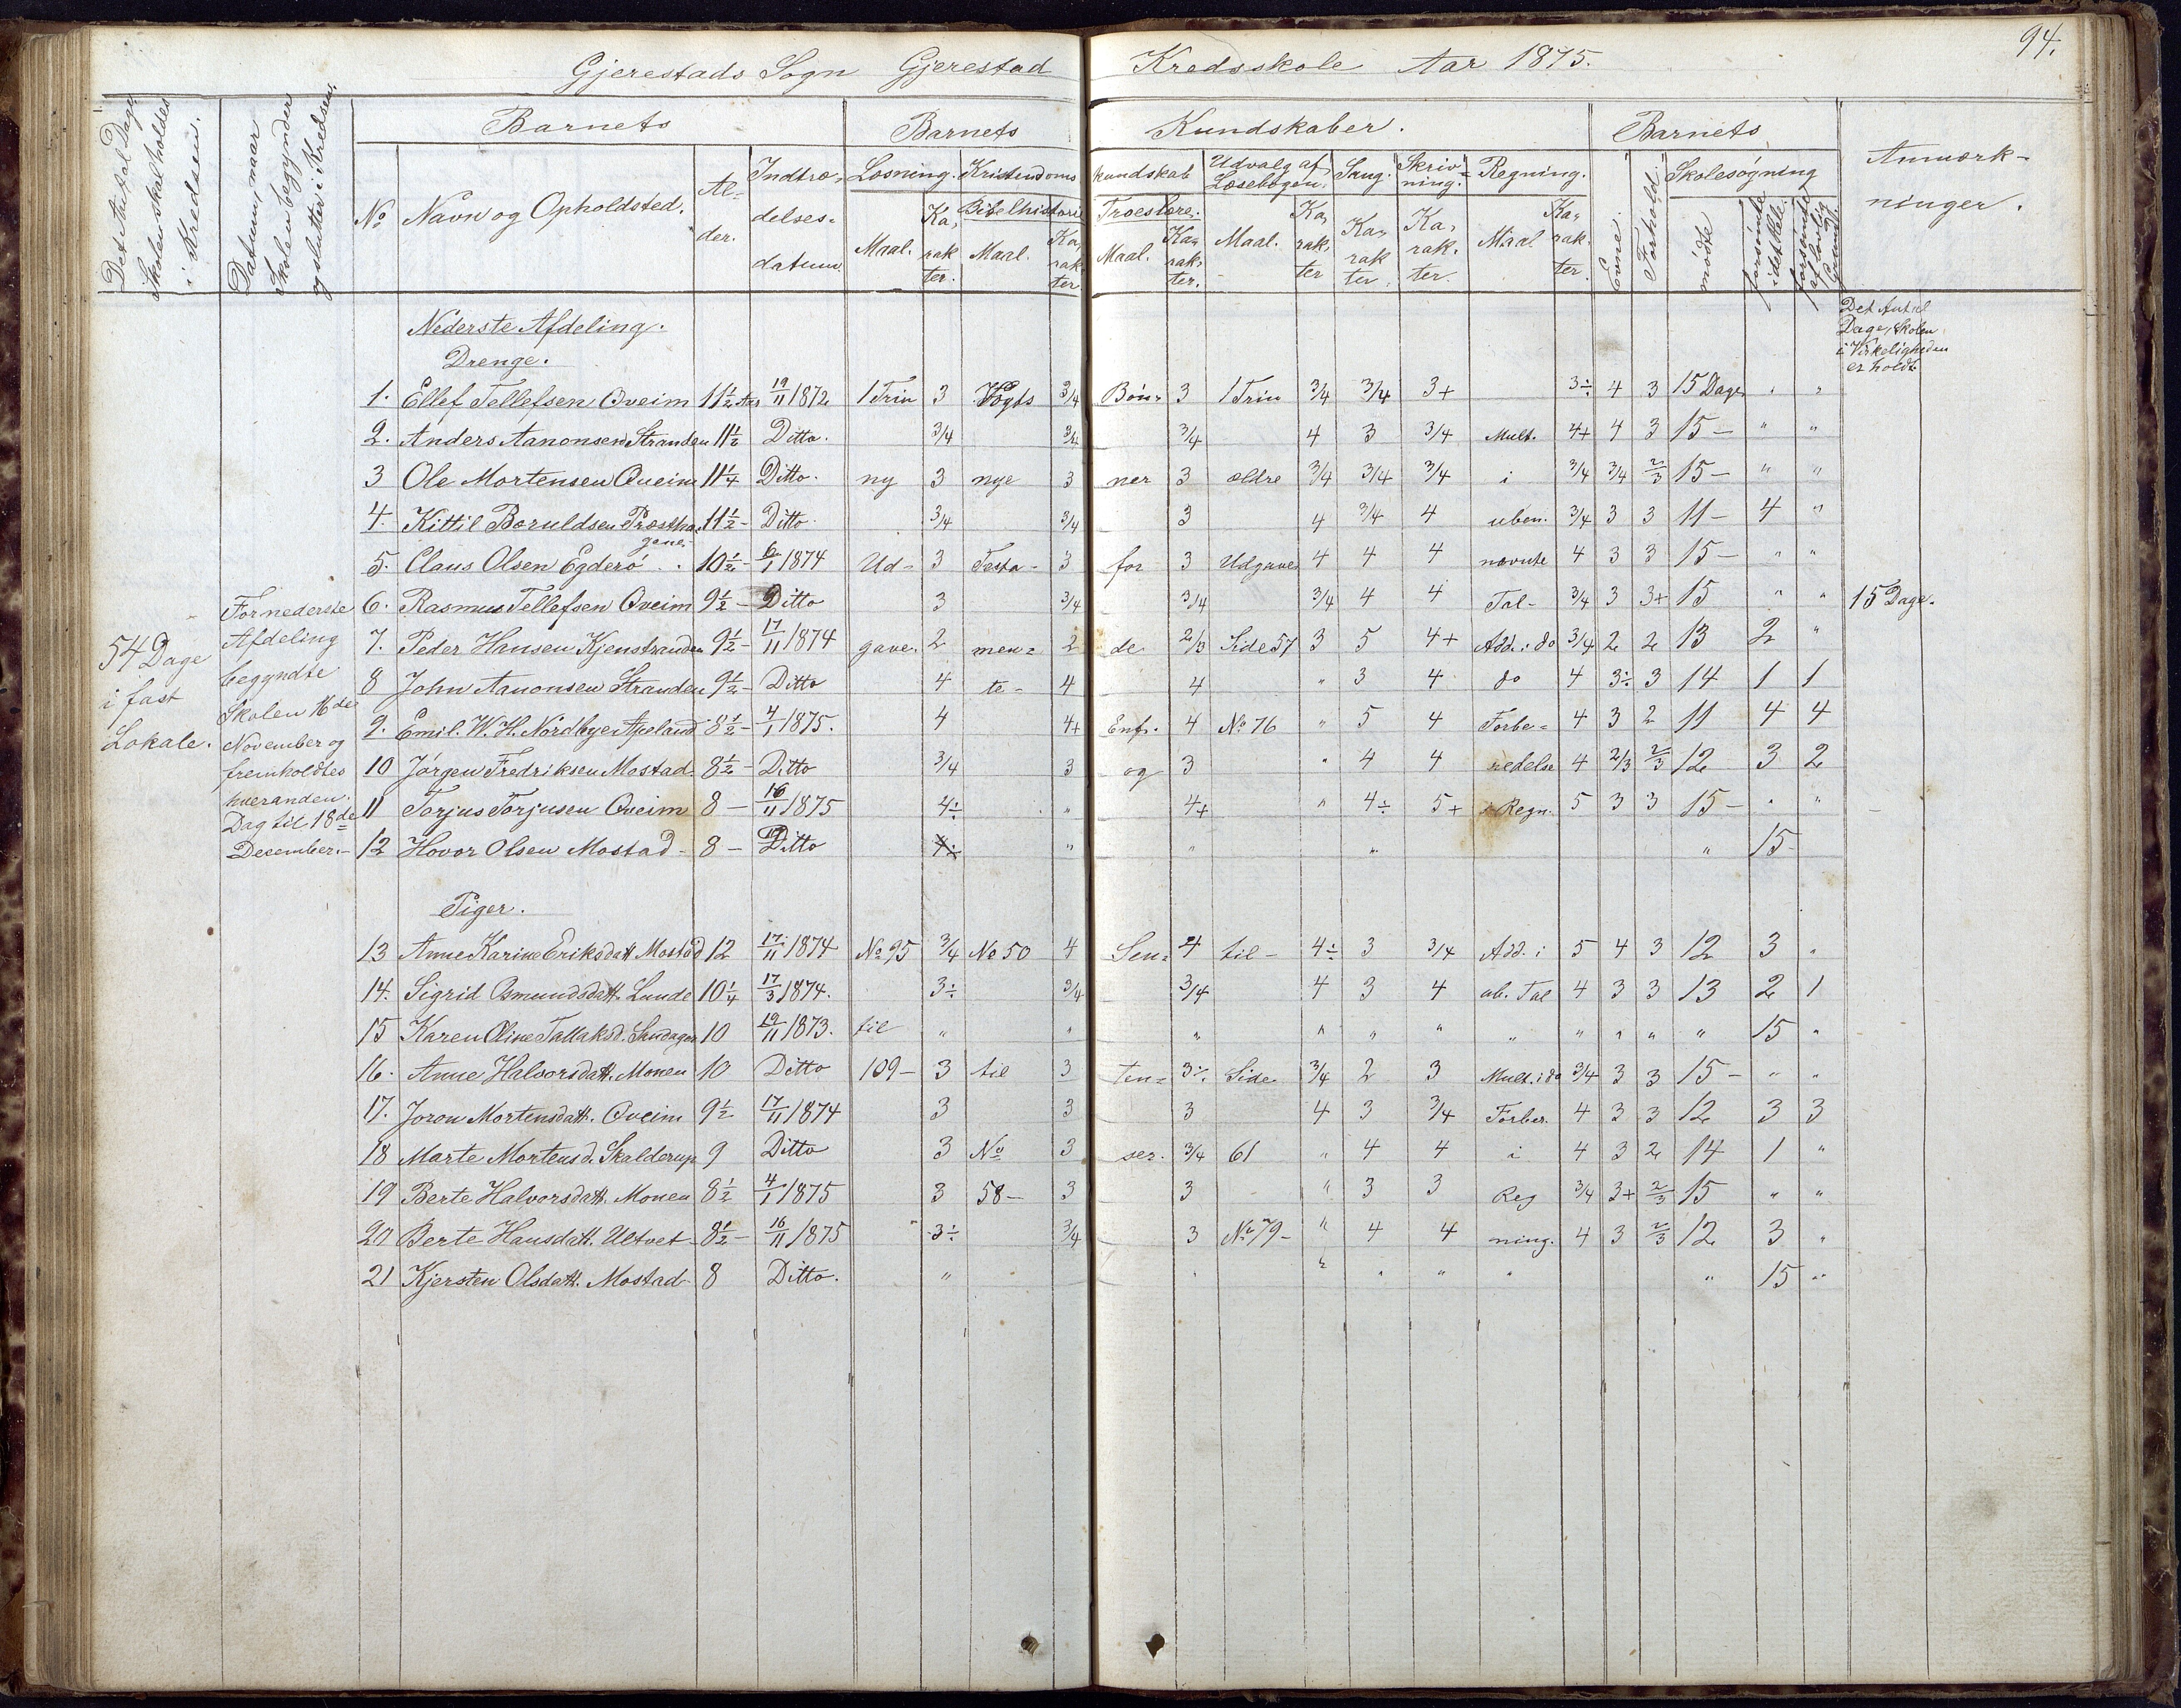 94.
Gjerestads Sogn Gjerestad Kredsskole Aar 1875.
Det Antal Dage Skolen skal holdes i Kredsen.
Datum, naar Skolen begynder og slutter i Kredsen.
Barnets
Barnets
Kundskaber.
Barnets
Anmærkninger.
No
Navn og Opholdsted.
Alder.
Indtrædelsesdatum
Læsning. Kristendomskundskab
Udvalg af Læsebogen.
Sang.
Skrivning.
Regning.
Evne.
Forhold.
Skolesøgning
Maal. Karakter.
Bibelhistorie
Maal. Karakter
Troeslære.
Maal. Karakter.
Maal. Karakter
Karakter.
Karakter.
Maal Karakter.
mødte
forsømte idethele
forsømte af lovlig Grund
Nederste Afdeling.
Drenge.
Det Antal Dage, Skolen i Virkeligheden er holdt
1. Ellef Tellefsen Qveim 11½ Aar 19/11 1872 1 Trin 3 Vogts 3/4 Bøn= 3 1 Trin 3/4 3/4 3+ 3÷ 4 3 15 Dage " "
2. Anders Aanonsen Stranden 11½ Ditto. 3/4 3/4 3/4 4 3 3/4 Mult. 4+ 4 3 15 — " "
3 Ole Mortensen Qveim 11¼ Ditto. ny 3 nye 3 ner 3 ældre 3/4 3/4 3/4 i 3/4 3/4 2/3 15 — " "
4. Kittil Boruldsen Præsthagene. 11½ - Ditto. 3/4 3/4 3 4 3/4 4 uben. 3/4 3 3 11 — 4 "
5. Claus Olsen Egderø . . 10½ - 6/1 1874 Ud- 3 Testa- 3 for 3 Udgave 4 4 4 nævnte 4 3 3 15 — " "
6. Rasmus Tellefsen Qveim 9½ - Ditto 3 3/4 3/4 3/4 4 4 Tal- 3/4 3 3+ 15 " " 15 Dage.
7. Peder Hansen Kjenstranden 9½ - 17/11 1874 gave. 2 men= 2 de 2/3 Side 57 3 5 4+ Add. i do 3/4 2 2 13 2 "
8 John Aanonsen Stranden 9½ - Ditto 4 te- 4 4 " 3 4 do 4 3÷ 3 14 1 1
9. Emil. W. H. Nordbye Apeland 8½ - 4/1 1875. 4 4+ Enf. 4 No 76 " 5 4 Forbe= 4 3 2 11 4 4
10 Jørgen Fredriksen Mostad 8½ - Ditto 3/4 3 og 3 " 4 4 redelse 4 2/3 2/3 12 3 2
11 Torjus Torjusen Qveim 8 — 16/11 1875 4÷ " 4+ " 4÷ 5+ i Regn. 5 3 3 15 — " "
12 Hovor Olsen Mostad - 8 — Ditto " " " " 15 -
54 Dage
i fast
Lokale.
For nederste
Afdeling
begyndte
Skolen 16de
November og
fremholdtes
hveranden
Dag til 18de
December. -
Piger.
13 Anne Karine Eriksdatt. Mostad 12 17/11 1874 No 95 3/4 No 50 4 Sen= 4 til - 4÷ 3 3/4 Add. i 5 4 3 12 3 "
14. Sigrid Osmundsdatt. Lunde 10¼ 17/3 1874. 3÷ 3/4 3/4 4 3 4 ub. Tal 4 3 3 13 2 1
15 Karen Oline Tallaksd. Sandager 10 19/11 1873. til " " " " " " " " " " " 15 "
16. Anne Halvorsdatt. Monen 10 Ditto 109 — 3 til 3 ten= 3÷ Side 3/4 2 3 Mult. i do 3/4 3 3 15 — " "
17. Joron Mortensdatt. Qveim 9½ 17/11 1874 3 3 3 4 3 3/4 Forber. 4 3 3 12 3 3
18 Marte Mortensd. Skalderup 9 Ditto 3 No 3 ser. 3/4 61 " 4 4 i 4 3 2 14 1 "
19 Berte Halvorsdatt. Monen 8½ 4/1 1875 3 58 — 3 3 " 3 3 Reg 3/4 3+ 2/3 15 " "
20 Berte Hansdatt. Ultvet - 8½ - 16/11 1875 3÷ 3/4 3 No 79 - " 4 4 ning. 4 3 2/3 12 3 "
21 Kjersten Olsdatt. Mostad - 8 Ditto. " " " " " " " 15 "